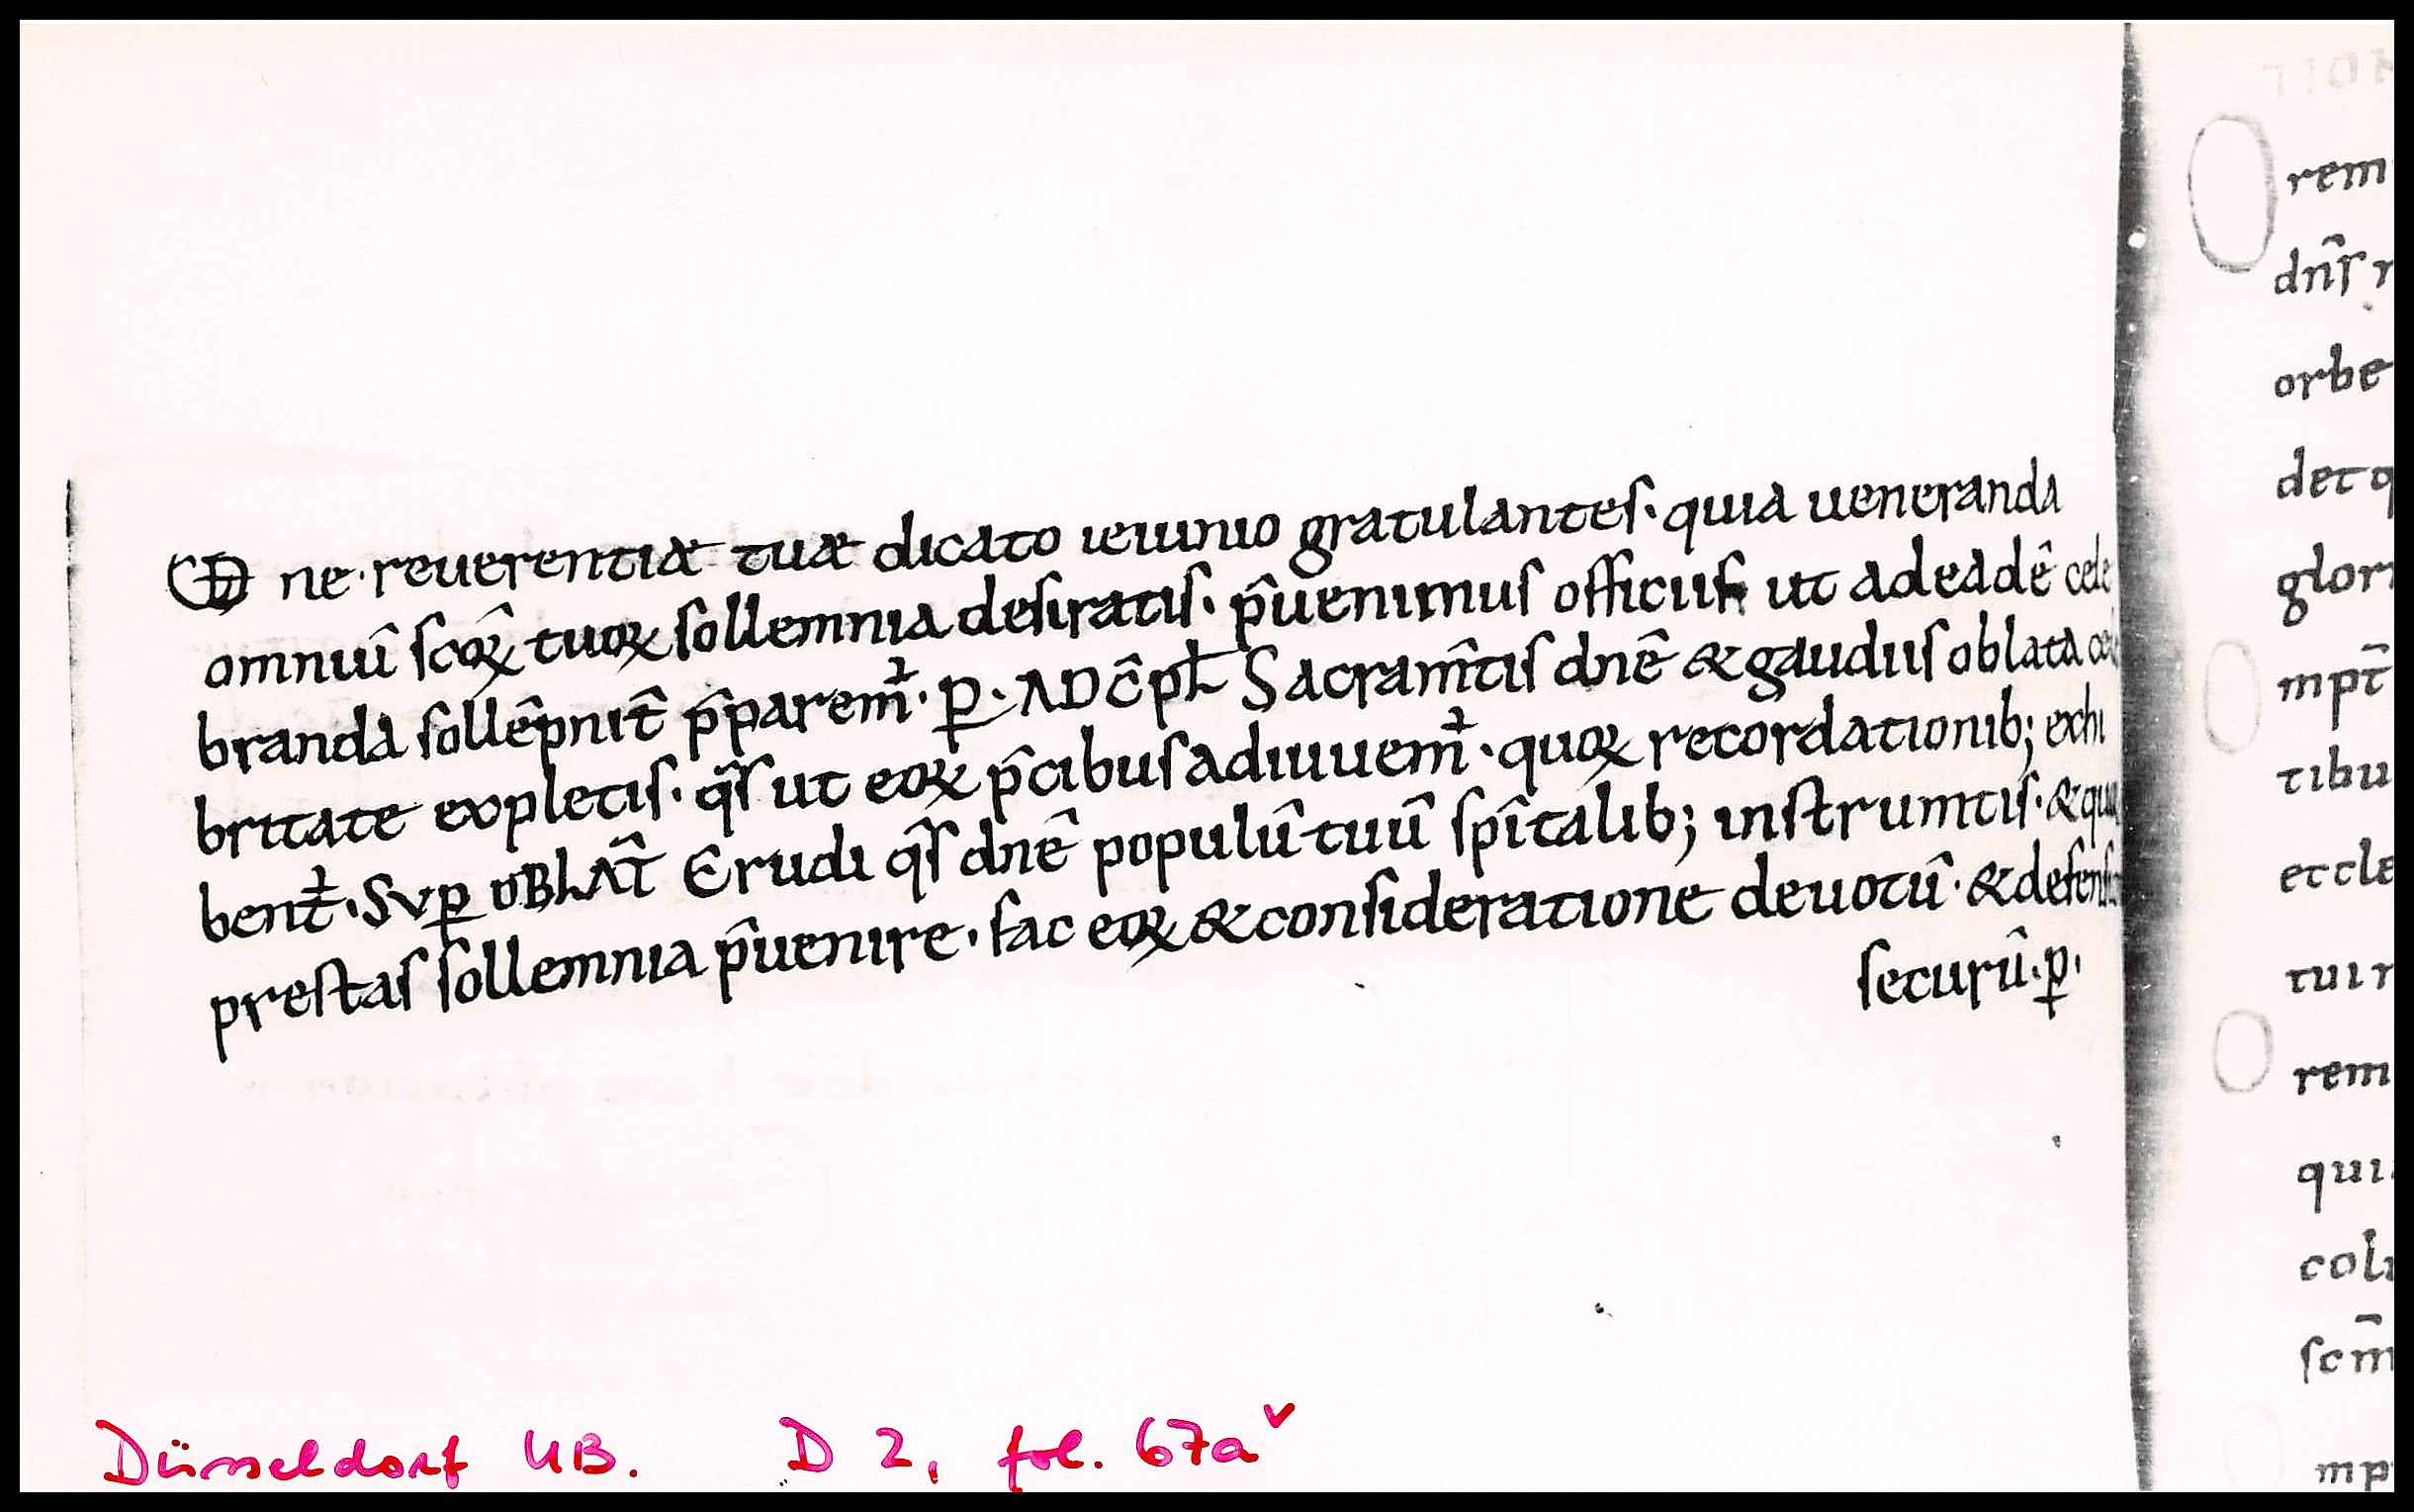 UD ne·reuerentiæ tuæ dicato ieiunio gratulantes· quia ueneranda
omniū scōꝝ tuoꝝ sollemnia desiratis· p̄uenimus officiis ut ad eadē cele
branda sollēpnit̄ p̄parem̄· ꝑ· AD C̄PL Sacram̄tis dnē & gaudiis oblata cele
britate expletis· q̄s ut eoꝝ p̄cibus adiuuem̄· quoꝝ recordationib; exhi
bent̄· SVꝑ OBLAT̄ Erudi q̄s dnē populū tuū sp̄italib; instrumtis· & quoꝝ
prestas sollemnia p̄uenire· fac eoꝝ & consideratione deuotū· & defensione
securū·ꝑ·
rem
dn̄s
orbe
det q
glori
mpt̄
tibu
eccle
tui
rem
qui
coli
scm̄
mp
Düsseldorf UB. D 2, fol. 67aᵛ